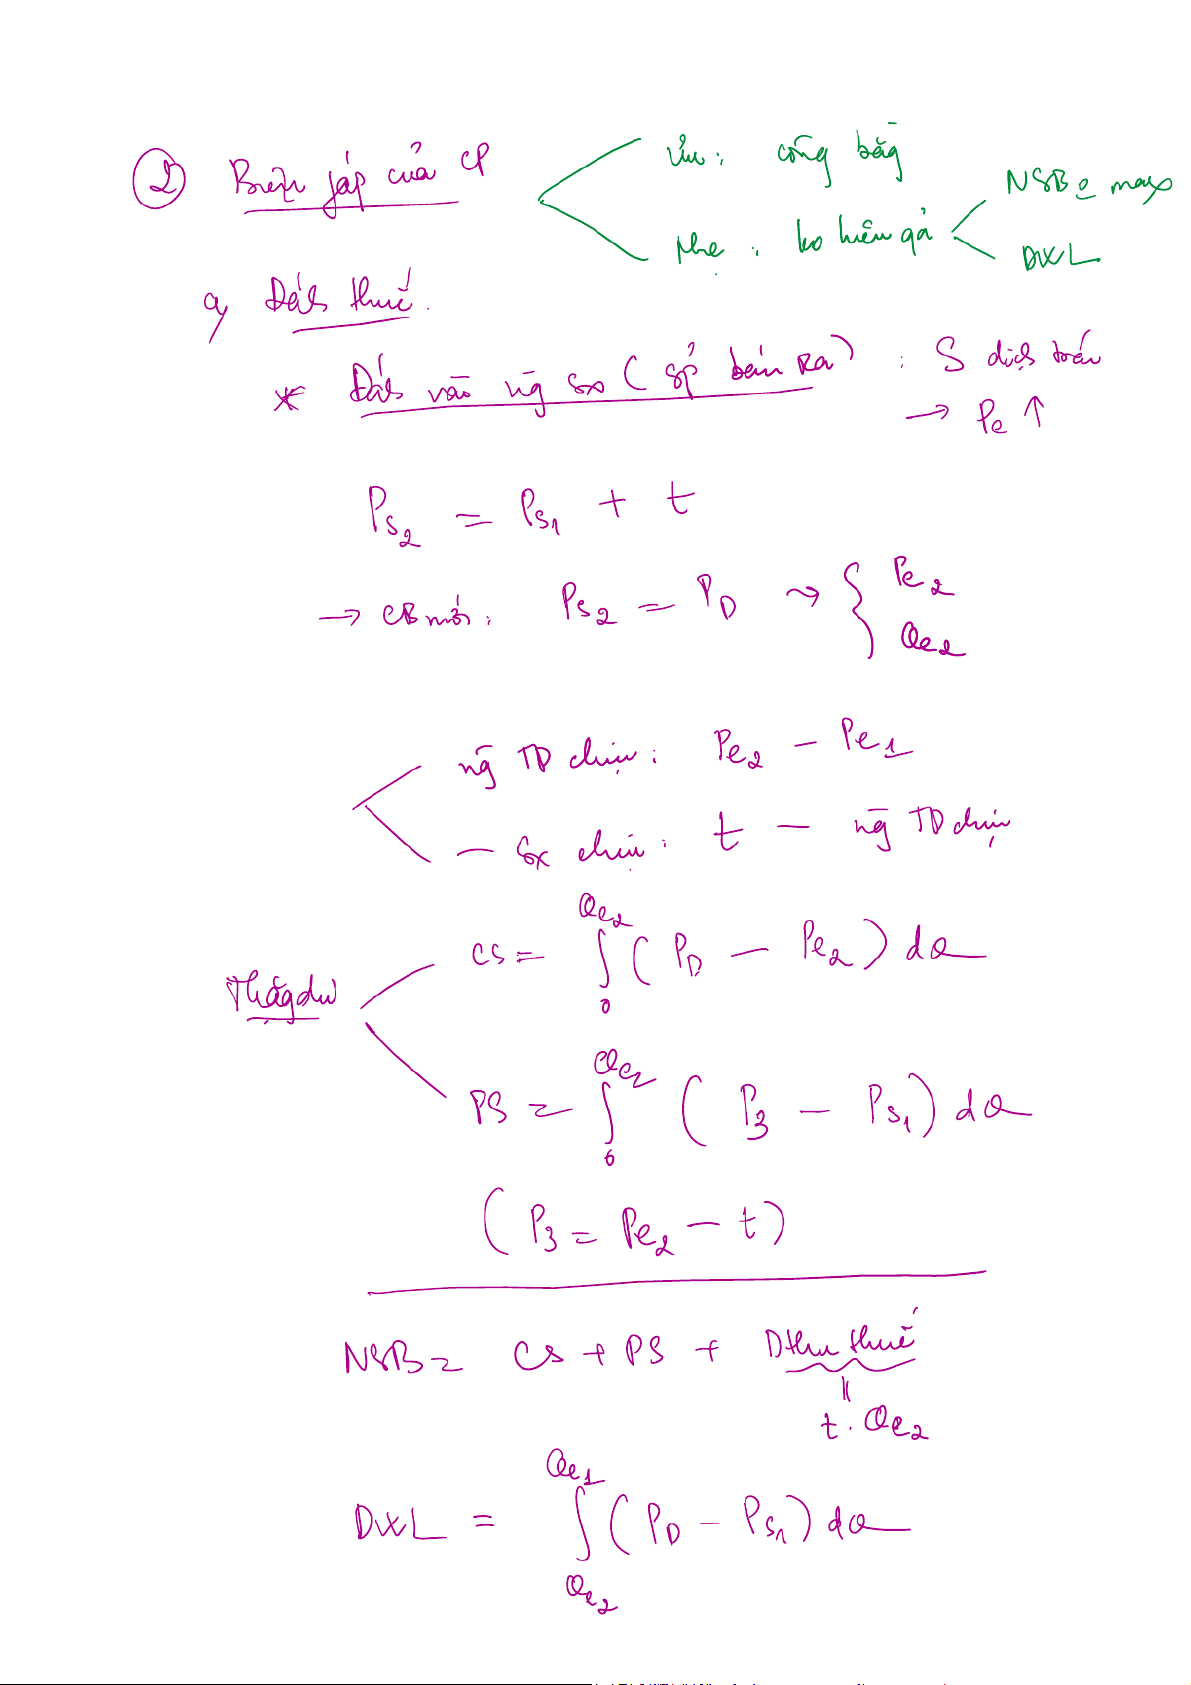 ② Biện fáp của CP
Ưu : công bằg
Nhc : ko hiệu qả
NSB ko max
DWL
a, Đáh thuế.
* Đáh vào ng sx ( sp bán ra) : S dịch trái
→ Pe ↑
Ps₂ = Ps₁ + t
→ CB mới : Ps₂ = P_D ⇝ { Pe₂
Qe₂
ng TD chịu : Pe₂ − Pe₁
− sx chịu : t − ng TD chịu
Thặg dư
CS = ∫₀^Qe₂ ( P_D − Pe₂ ) dQ
PS = ∫₀^Qe₂ ( P₃ − Ps₁ ) dQ
( P₃ = Pe₂ − t )
NSB = CS + PS + Dthu thuế
" t . Qe₂
DWL = ∫_Qe₂^Qe₁ ( P_D − Ps₁ ) dQ